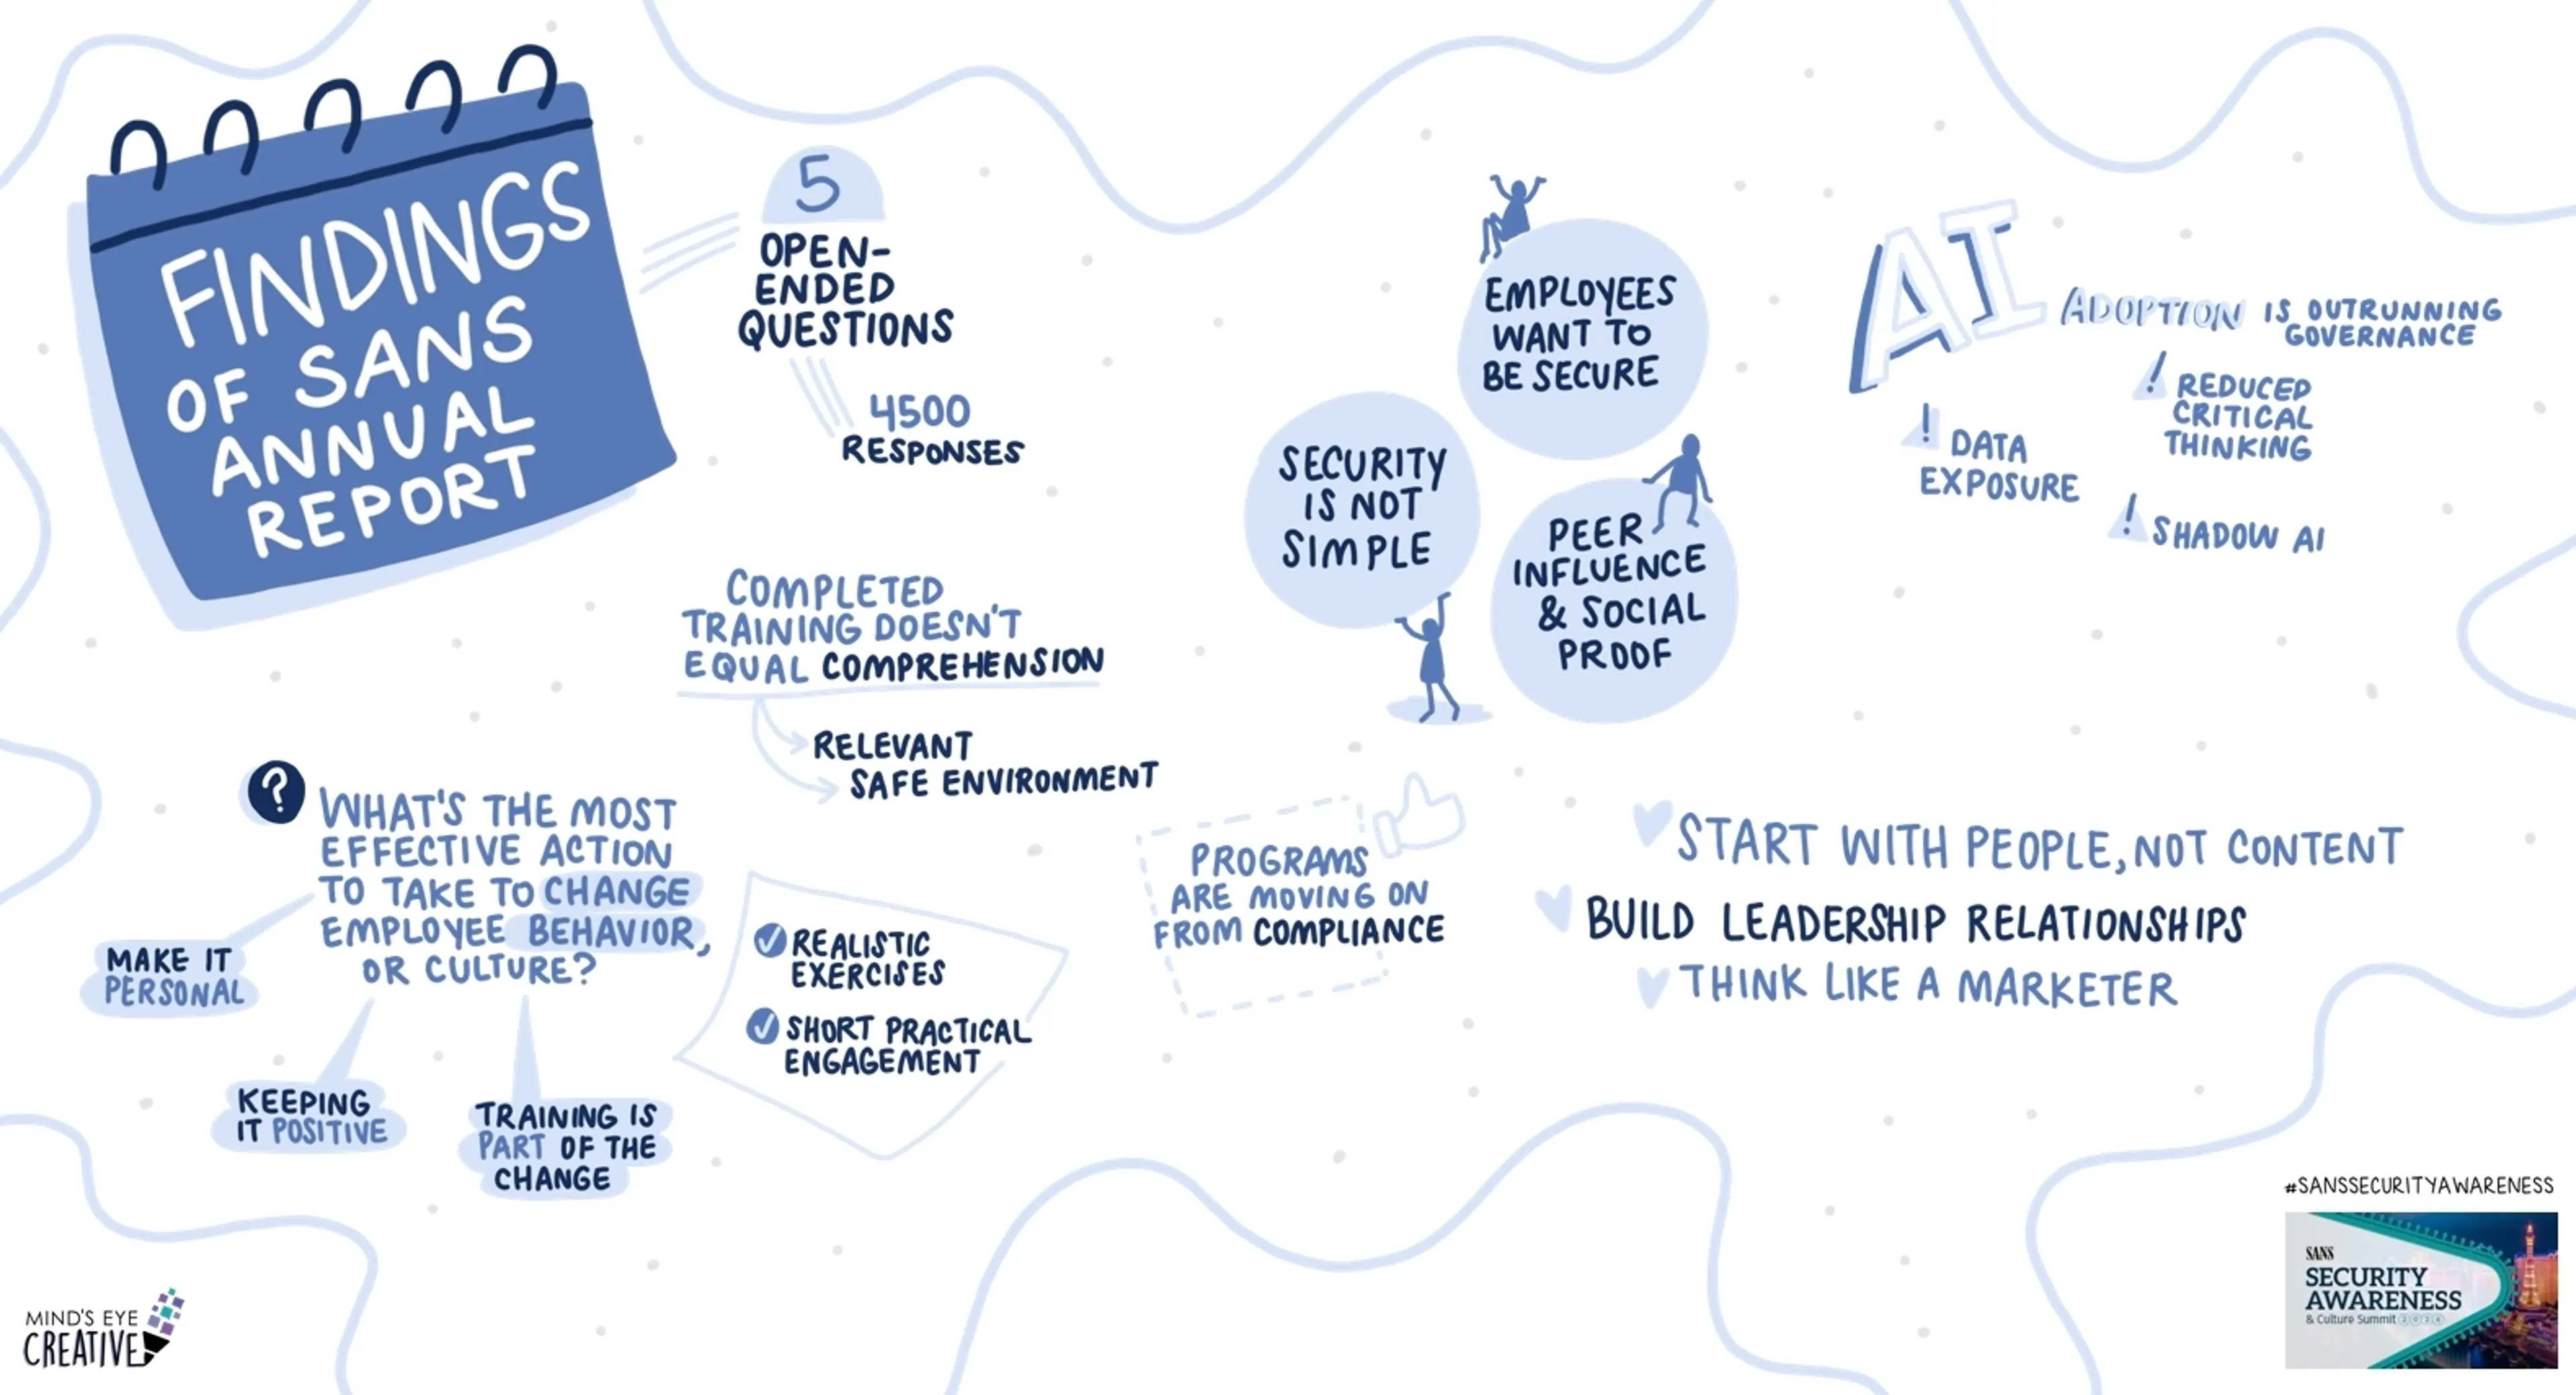 FINDINGS
OF SANS
ANNUAL
REPORT
5
OPEN-
ENDED
QUESTIONS
4500
RESPONSES
COMPLETED
TRAINING DOESN'T
EQUAL COMPREHENSION
RELEVANT
SAFE ENVIRONMENT
?
WHAT'S THE MOST
EFFECTIVE ACTION
TO TAKE TO CHANGE
EMPLOYEE BEHAVIOR,
OR CULTURE?
MAKE IT
PERSONAL
KEEPING
IT POSITIVE
TRAINING IS
PART OF THE
CHANGE
REALISTIC
EXERCISES
SHORT PRACTICAL
ENGAGEMENT
EMPLOYEES
WANT TO
BE SECURE
SECURITY
IS NOT
SIMPLE
PEER
INFLUENCE
& SOCIAL
PROOF
PROGRAMS
ARE MOVING ON
FROM COMPLIANCE
AI ADOPTION IS OUTRUNNING
GOVERNANCE
! DATA
EXPOSURE
! REDUCED
CRITICAL
THINKING
! SHADOW AI
START WITH PEOPLE, NOT CONTENT
BUILD LEADERSHIP RELATIONSHIPS
THINK LIKE A MARKETER
MIND'S EYE
CREATIVE
#SANSSECURITYAWARENESS
SANS
SECURITY
AWARENESS
& Culture Summit